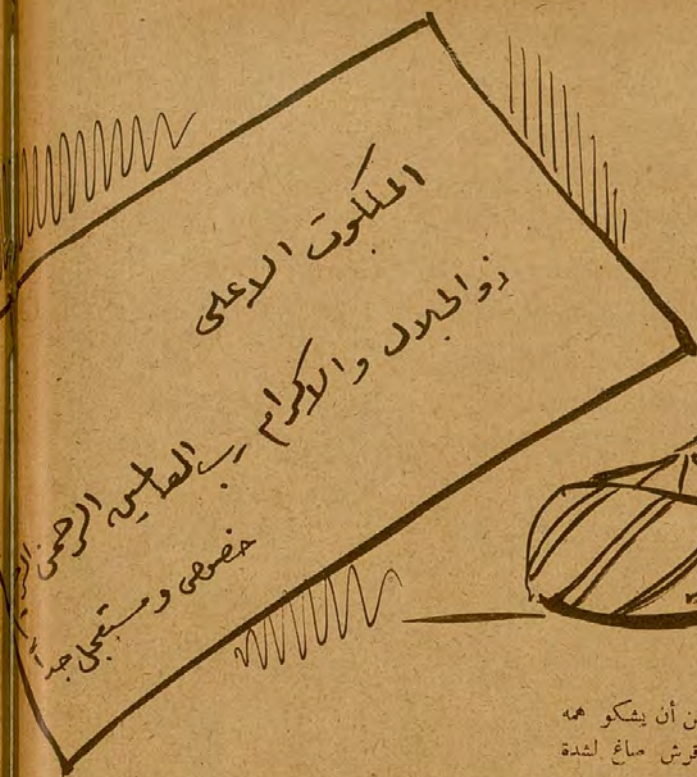 الملكوت الاعلى
ذو الجلال والاكرام رب العالمين الرحمن الرحيم
خصوصى ومستعجل جداً
ن أن يشكو همه
قرش صاغ لشدة